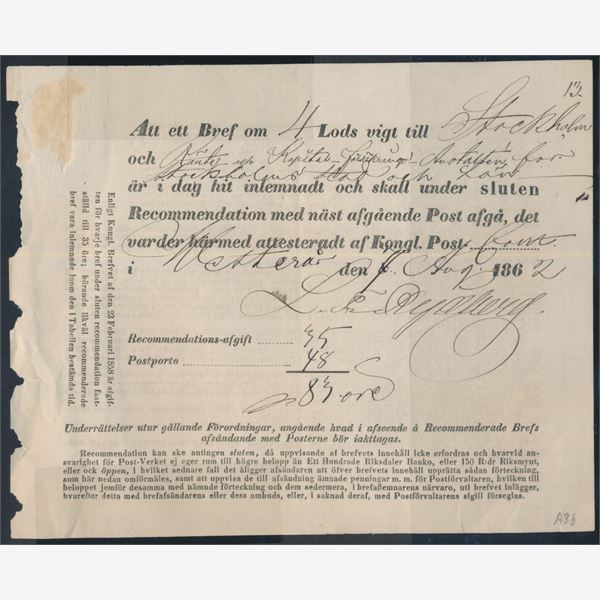 13.
Att ett Bref om 4 Lods vigt till Stockholm
och Ränte och Kapital-Försäkrings-Anstalten för
Stockholms Stad och Län
är i dag hit inlemnadt och skall under sluten
Recommendation med näst afgående Post afgå, det
varder härmed attesteradt af Kongl. Post-Cont.
i Westerås den 9 Aug. 1862
Recommendations-afgift ........ 35
Postporto ................ 48
83 öre
Underrättelser utur gällande Förordningar, angående hvad i afseende å Recommenderade Brefs
afsändande med Posterne bör iakttagas.
Recommendation kan ske antingen sluten, då uppvisande af brefvets innehåll icke erfordras och hvarvid an-
svarighet för Post-Verket ej eger rum till högre belopp än Ett Hundrade Riksdaler Banko, eller 150 R:dr Riksmynt,
eller ock öppen, i hvilket sednare fall det åligger afsändaren att öfver brefvets innehåll upprätta sådan förteckning,
som här nedan omförmäles, samt att uppvisa de till afsändning ämnade penningar m. m. för Postförvaltaren, hvilken till
beloppet jemför desamma med nämnde förteckning och sedermera, i brefaflemnarens närvaro, uti brefvet inlägger,
hvarefter detta med brefafsändarens eller dess ombuds, eller, i saknad deraf, med Postförvaltarens sigill förseglas.
Enligt Kongl. Brefvet af den 23 Februari 1858 är afgif-
ten för hvarje bref under sluten recommendation fast-
ställd till 35 öre; börande likväl recommenderade
bref vara inlemnade inom den i Tabellen bestämda tid.
A36